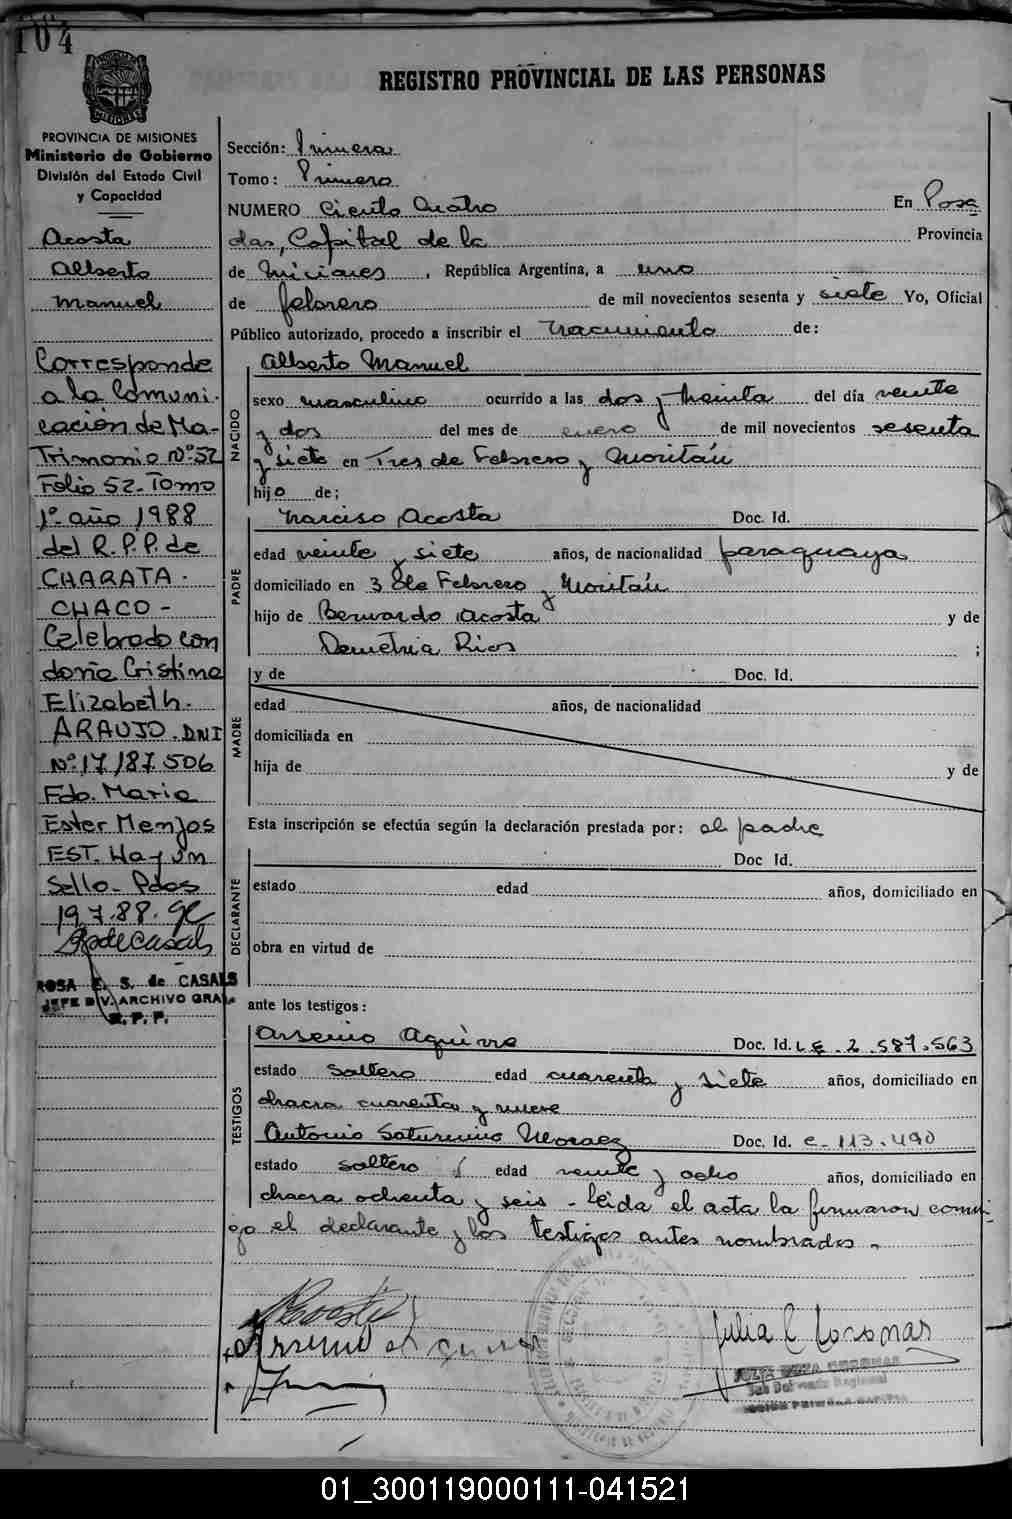 104
REGISTRO PROVINCIAL DE LAS PERSONAS
PROVINCIA DE MISIONES
Ministerio de Gobierno
División del Estado Civil
y Capacidad
Acosta
Alberto
Manuel
Corresponde
a la Comuni-
cación de Ma-
Trimonio Nº 52
Folio 52-Tomo
1º año 1988
del R.P.P. de
CHARATA.
CHACO-
Celebrado con
doña Cristina
Elizabeth.
ARAUJO. DNI
Nº 17,187.506
Fdo. Maria
Ester Menjos
EST.
Sello- Pdas
19.7.88.
ROSA E. S. de CASALS
JEFE DIV. ARCHIVO GRAL
R. P. P.
Sección: Primera
Tomo: Primero
NUMERO Ciento Cuatro En Posa
das, Capital de la Provincia
de Miciones, República Argentina, a uno
de febrero de mil novecientos sesenta y siete Yo, Oficial
Público autorizado, procedo a inscribir el nacimiento de:
NACIDO
Alberto Manuel
sexo masculino ocurrido a las dos y treinta del día veinte
y dos del mes de enero de mil novecientos sesenta
y siete en Tres de Febrero y Moritán
hijo de;
PADRE
Narciso Acosta Doc. Id.
edad veinte y siete años, de nacionalidad paraguaya
domiciliado en 3 de Febrero y Moritán
hijo de Bernardo Acosta y de
Demetria Rios ;
MADRE
y de Doc. Id.
edad años, de nacionalidad
domiciliada en
hija de y de
Esta inscripción se efectúa según la declaración prestada por: el padre
DECLARANTE
Doc Id.
estado edad años, domiciliado en
obra en virtud de
ante los testigos:
TESTIGOS
Arsenio Aquirre Doc. Id. L.E. 2.587.563
estado soltero edad cuarenta y siete años, domiciliado en
chacra cuarenta y nueve
Antonio Saturnino Moraez Doc. Id. c- 113.490
estado soltero edad veinte y ocho años, domiciliado en
chacra ochenta y seis - leida el acta la firmaron conmi-
go el declarante y los testigos antes nombrados -
Julia C Coronas
01_300119000111-041521